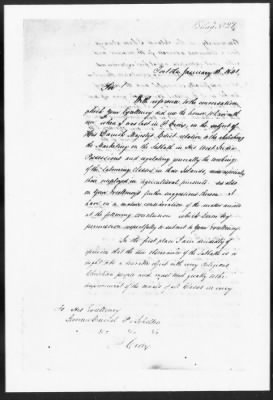 Tortola, January 1841.
Sir,
With reference to the conversation,
which Your Excellency did me the honor to have with
me when I was last in St Croix, on the subject of
His Danish Majesty's Edict relative to the abolishing
the Marketing on the Sabbath in His West India
Possessions and regulating generally the working
of the labouring Classes in these Islands, more especially
those employed in agricultural pursuits as also
on Your Excellency's further suggestions thereon I
have on a mature consideration of the matter arrived
at the following conclusion which I crave leave by
permission respectfully to submit to Your Excellency.
In the first place I am decidedly of
opinion that the due observance of the Sabbath is a
object with every religious
Christian people and must tend greatly to the
improvement of the morals of St Croix in every
To His Excellency
Governor General P. v. Scholten
&c &c &c
St Croix